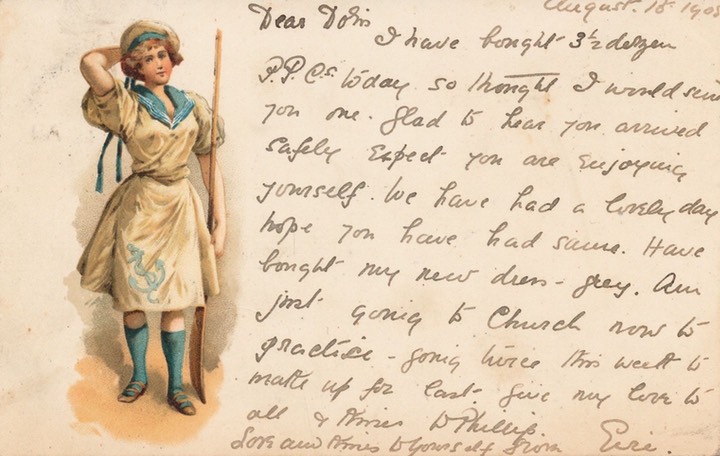 August. 18 190
Dear Dolis
I have bought 3½ dozen
P.P.Cs. today so thought I would send
you one. Glad to hear you arrived
safely Expect you are Enjoying
yourself. We have had a lovely day
hope you have had same. Have
bought my new dress - grey. Am
just going to Church now to
practise - going twice this week to
make up for last. Give my love to
all & kisses to Phillip.
Love and kisses to yourself from